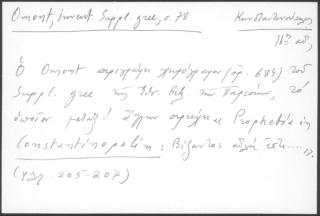 Omont, invent. Suppl. grec, σ. 78
Κωνσταντινούπολις
11ος αἰ.
Ὁ Omont περιγράφει χειρόγραφον (ἀρ. 684) τοῦ
Suppl. grec τῆς Ἐθν. βιβ. τῶν Παρισίων, τὸ
ὁποῖον μεταξὺ ἄλλων περιέχει Prophetia in
Constantinopolim : Βίζαντος αὐλὴ ἑστι....
(φφ. 205-207).